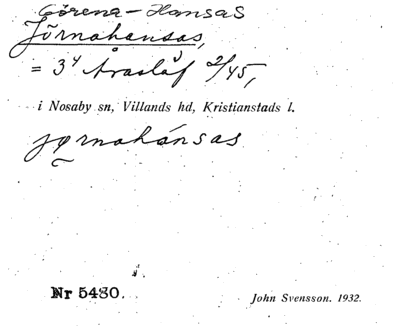 Görena-Hansas
Jörnahansas,
= 3⁴ Åraslöf 2/45,
i Nosaby sn, Villands hd, Kristianstads l.
jørnahánsas
Nr 5480.
John Svensson. 1932.